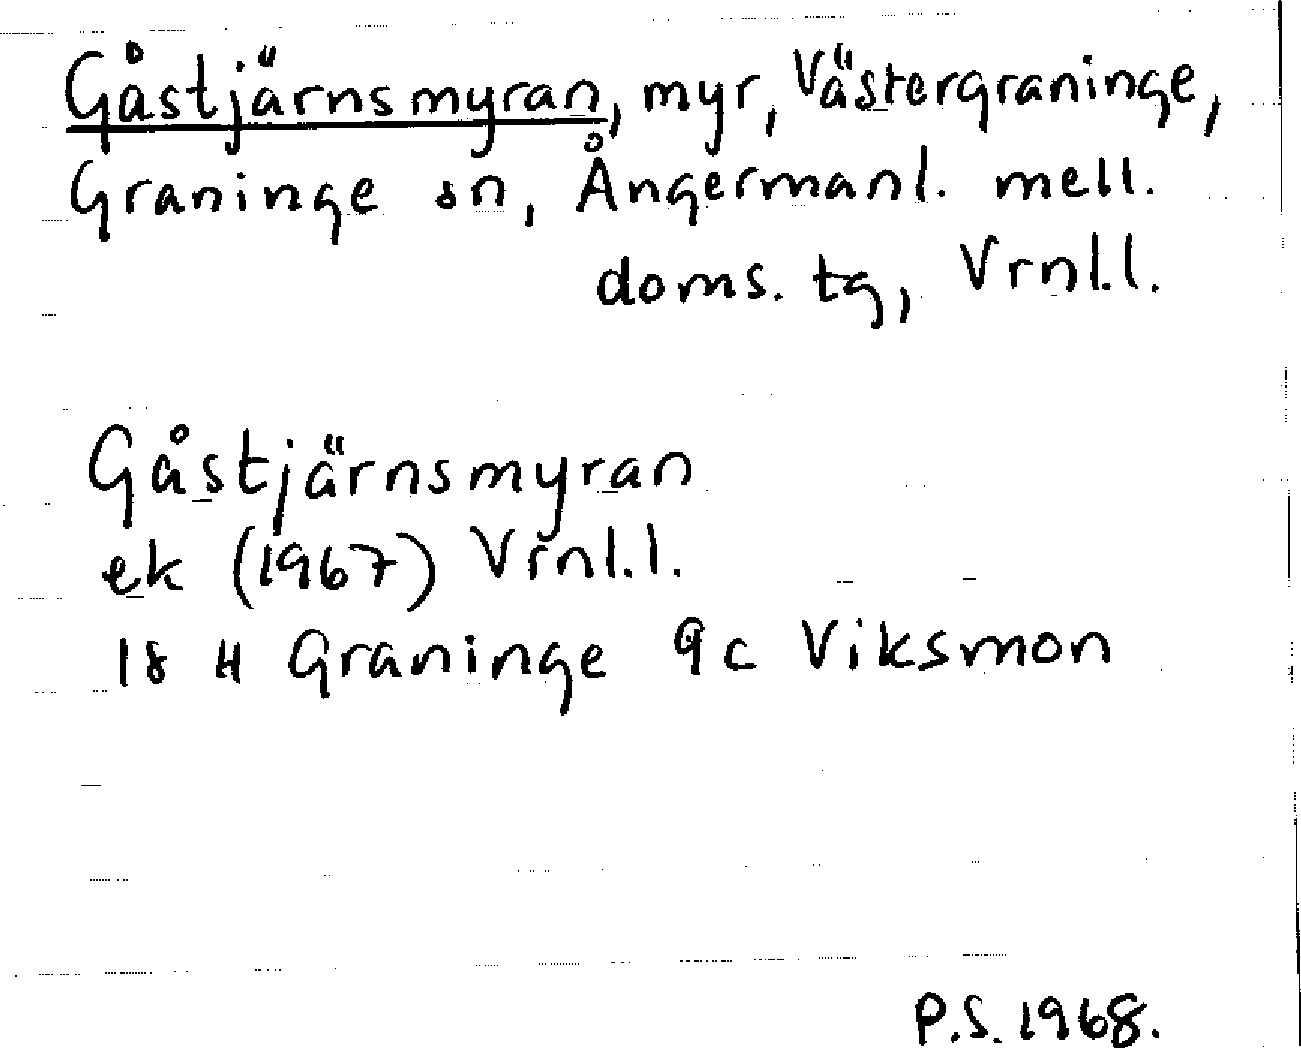 Gåstjärnsmyran, myr, Västergraninge,
Graninge sn, Ångermanl. mell.
doms. tg, Vrnl.l.
Gåstjärnsmyran
ek (1967) Vrnl.l.
18 H Graninge 9c Viksmon
P.S. 1968.